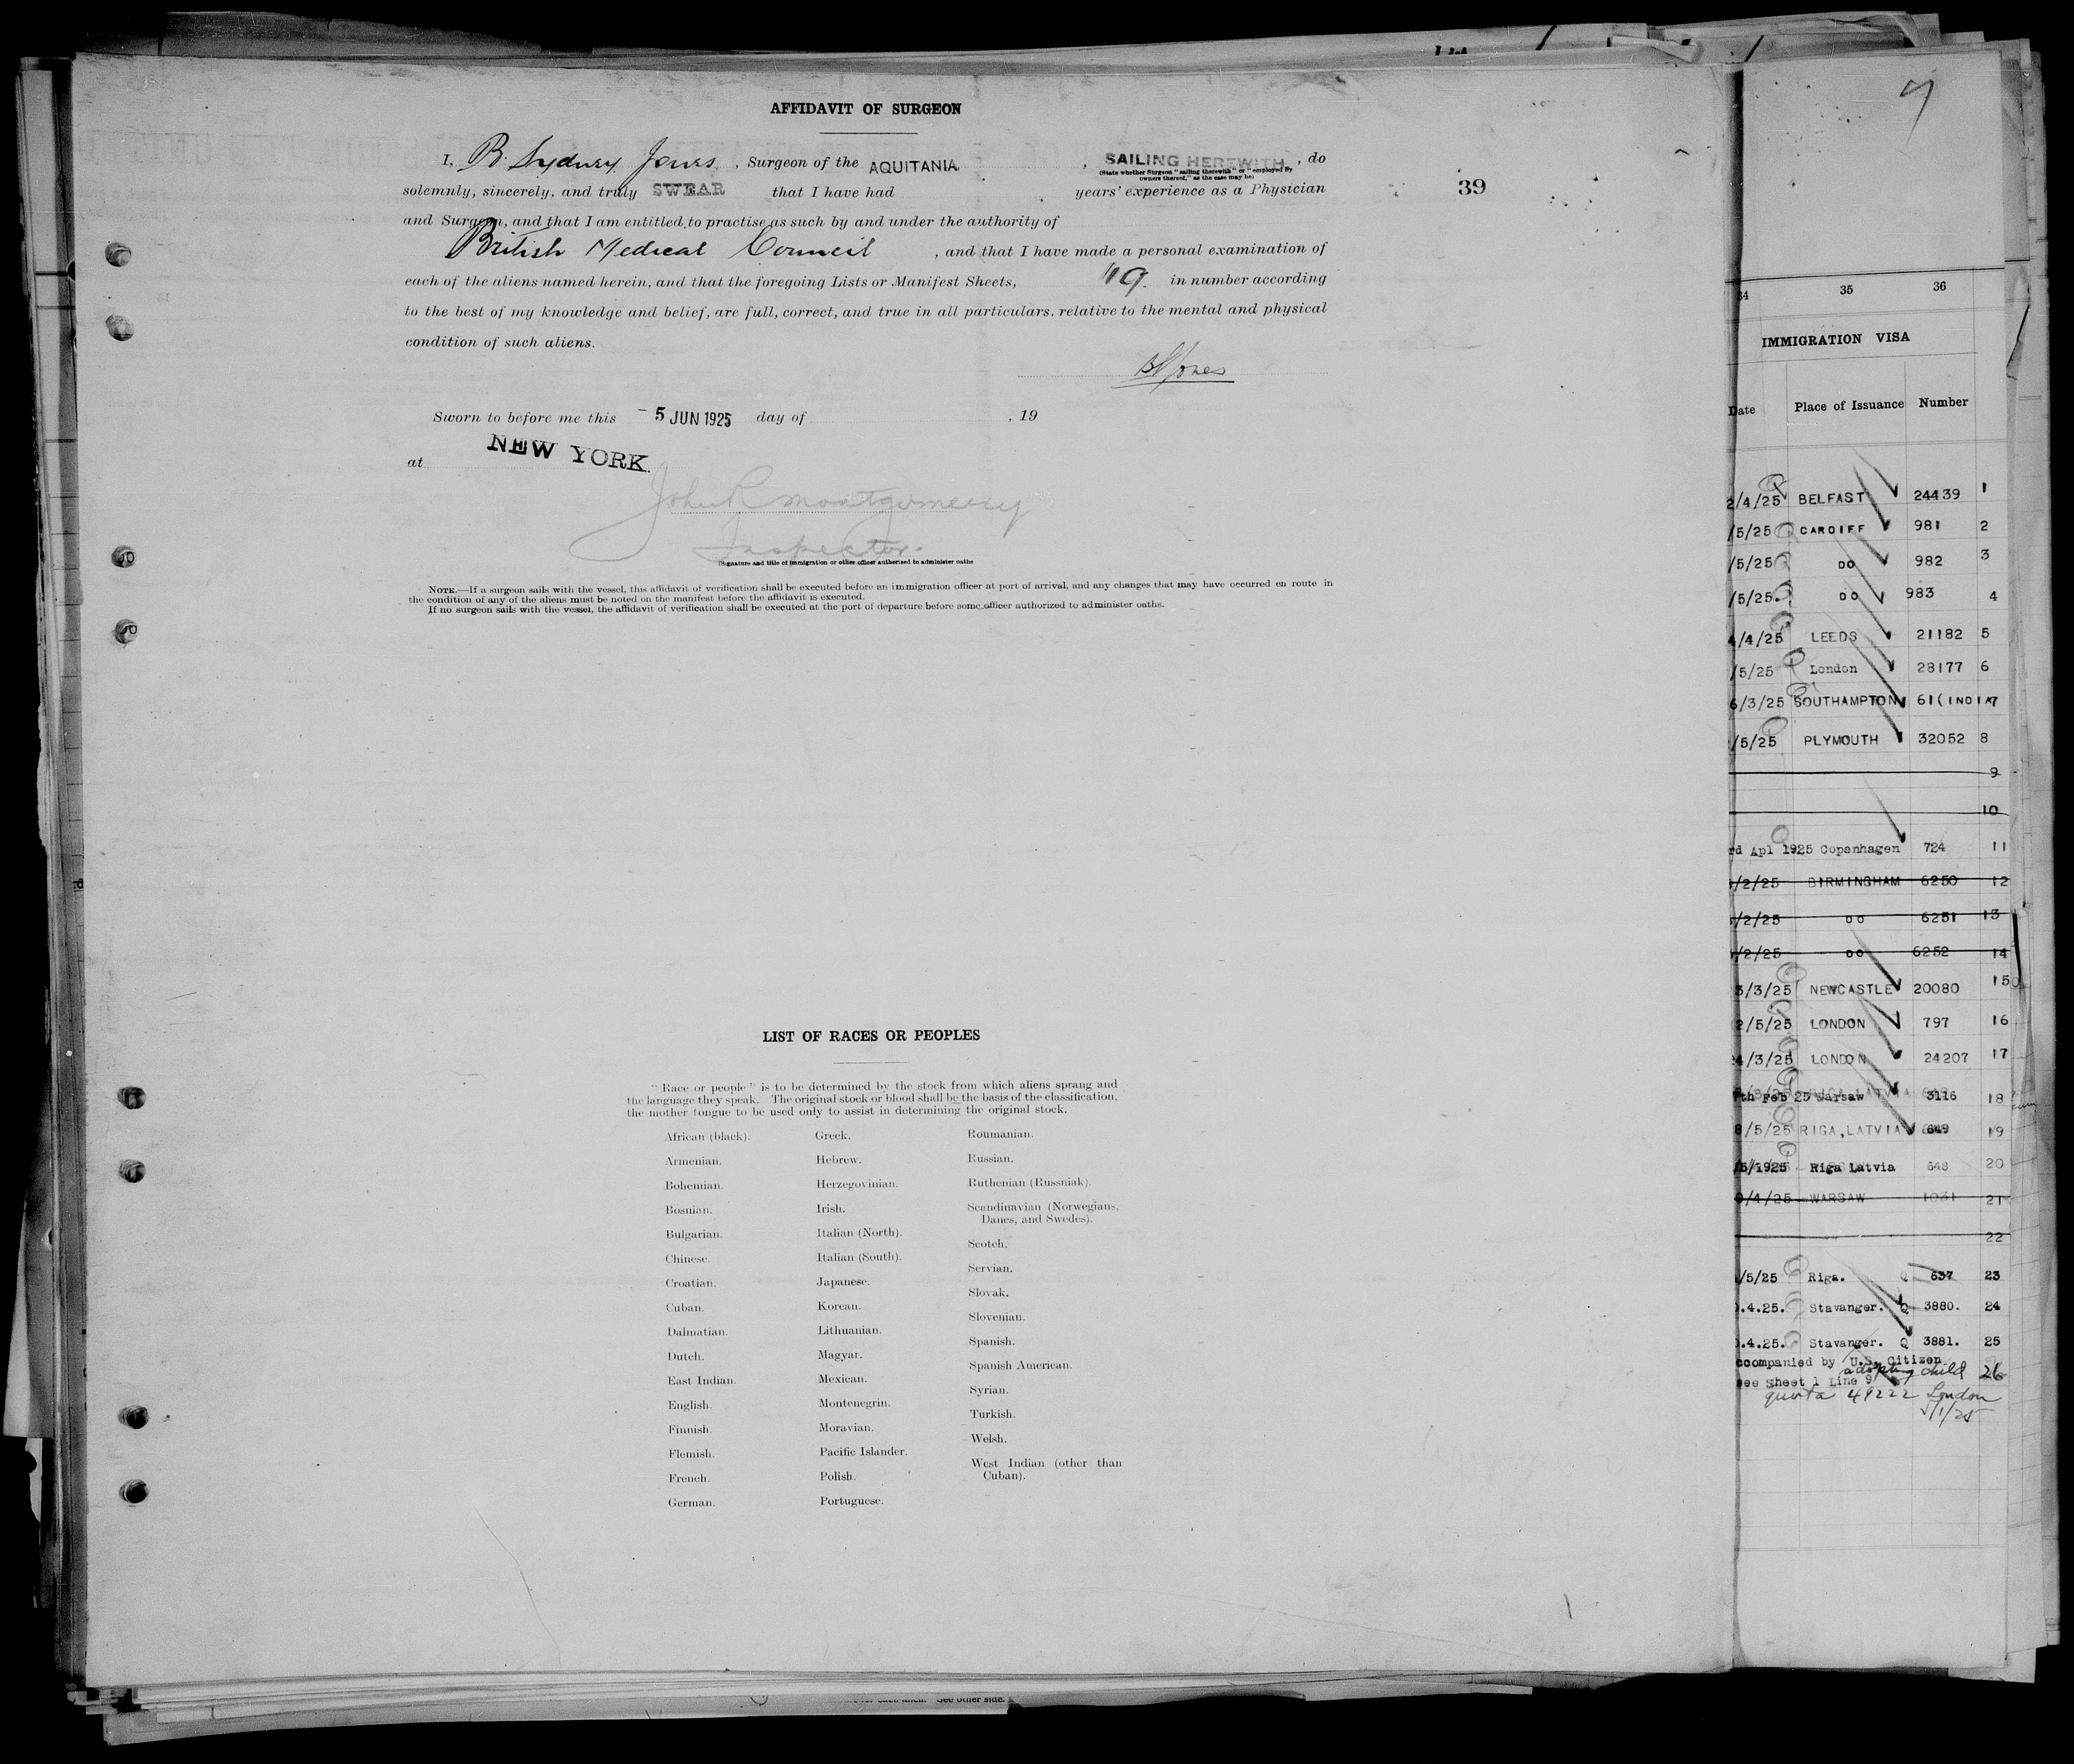 AFFIDAVIT OF SURGEON
I, B. Sydney Jones, Surgeon of the AQUITANIA, SAILING HEREWITH, do
(State whether Surgeon "sailing therewith" or "employed by
owners thereof," as the case may be)
solemnly, sincerely, and truly SWEAR that I have had years' experience as a Physician
39
and Surgeon, and that I am entitled to practise as such by and under the authority of
British Medical Council, and that I have made a personal examination of
each of the aliens named herein, and that the foregoing Lists or Manifest Sheets, 19 in number according
to the best of my knowledge and belief, are full, correct, and true in all particulars, relative to the mental and physical
condition of such aliens.
BSJones
Sworn to before me this - 5 JUN 1925 day of , 19
at NEW YORK.
John R Montgomery
Inspector.
(Signature and title of immigration or other officer authorised to administer oaths
NOTE.—If a surgeon sails with the vessel, this affidavit of verification shall be executed before an immigration officer at port of arrival, and any changes that may have occurred en route in
the condition of any of the aliens must be noted on the manifest before the affidavit is executed.
If no surgeon sails with the vessel, the affidavit of verification shall be executed at the port of departure before some officer authorized to administer oaths.
LIST OF RACES OR PEOPLES
"Race or people" is to be determined by the stock from which aliens sprang and
the language they speak. The original stock or blood shall be the basis of the classification,
the mother tongue to be used only to assist in determining the original stock.
African (black).
Armenian.
Bohemian.
Bosnian.
Bulgarian.
Chinese.
Croatian.
Cuban.
Dalmatian.
Dutch.
East Indian.
English.
Finnish.
Flemish.
French.
German.
Greek.
Hebrew.
Herzegovinian.
Irish.
Italian (North).
Italian (South).
Japanese.
Korean.
Lithuanian.
Magyar.
Mexican.
Montenegrin.
Moravian.
Pacific Islander.
Polish.
Portuguese.
Roumanian.
Russian.
Ruthenian (Russniak).
Scandinavian (Norwegians,
Danes, and Swedes).
Scotch.
Servian.
Slovak.
Slovenian.
Spanish.
Spanish American.
Syrian.
Turkish.
Welsh.
West Indian (other than
Cuban).
See other side.
34 35 36
IMMIGRATION VISA
Date Place of Issuance Number
2/4/25 BELFAST 24439 1
/5/25 CARDIFF 981 2
/5/25 DO 982 3
/5/25. DO 983 4
4/4/25 LEEDS 21182 5
/5/25 London 28177 6
6/3/25 SOUTHAMPTON 61(INDIA 7
/5/25 PLYMOUTH 32052 8
9
10
rd Apl 1925 Copenhagen 724 11
/2/25 BIRMINGHAM 6250 12
/2/25 DO 6251 13
/2/25 DO 6252 14
3/3/25 NEWCASTLE 20080 15
2/5/25 LONDON 797 16
24/3/25 LONDON 24207 17
7th Feb 25 Warsaw 3116 18
8/5/25 RIGA, LATVIA 649 19
/5/1925 Riga Latvia 648 20
0/4/25 WARSAW 1031 21
22
/5/25 Riga. Q 637 23
.4.25. Stavanger. Q 3880. 24
.4.25. Stavanger. Q 3881. 25
ccompanied by U.S. Citizen
adopting child 26
see Sheet 1 Line 9
quota 49222 London
5/1/25